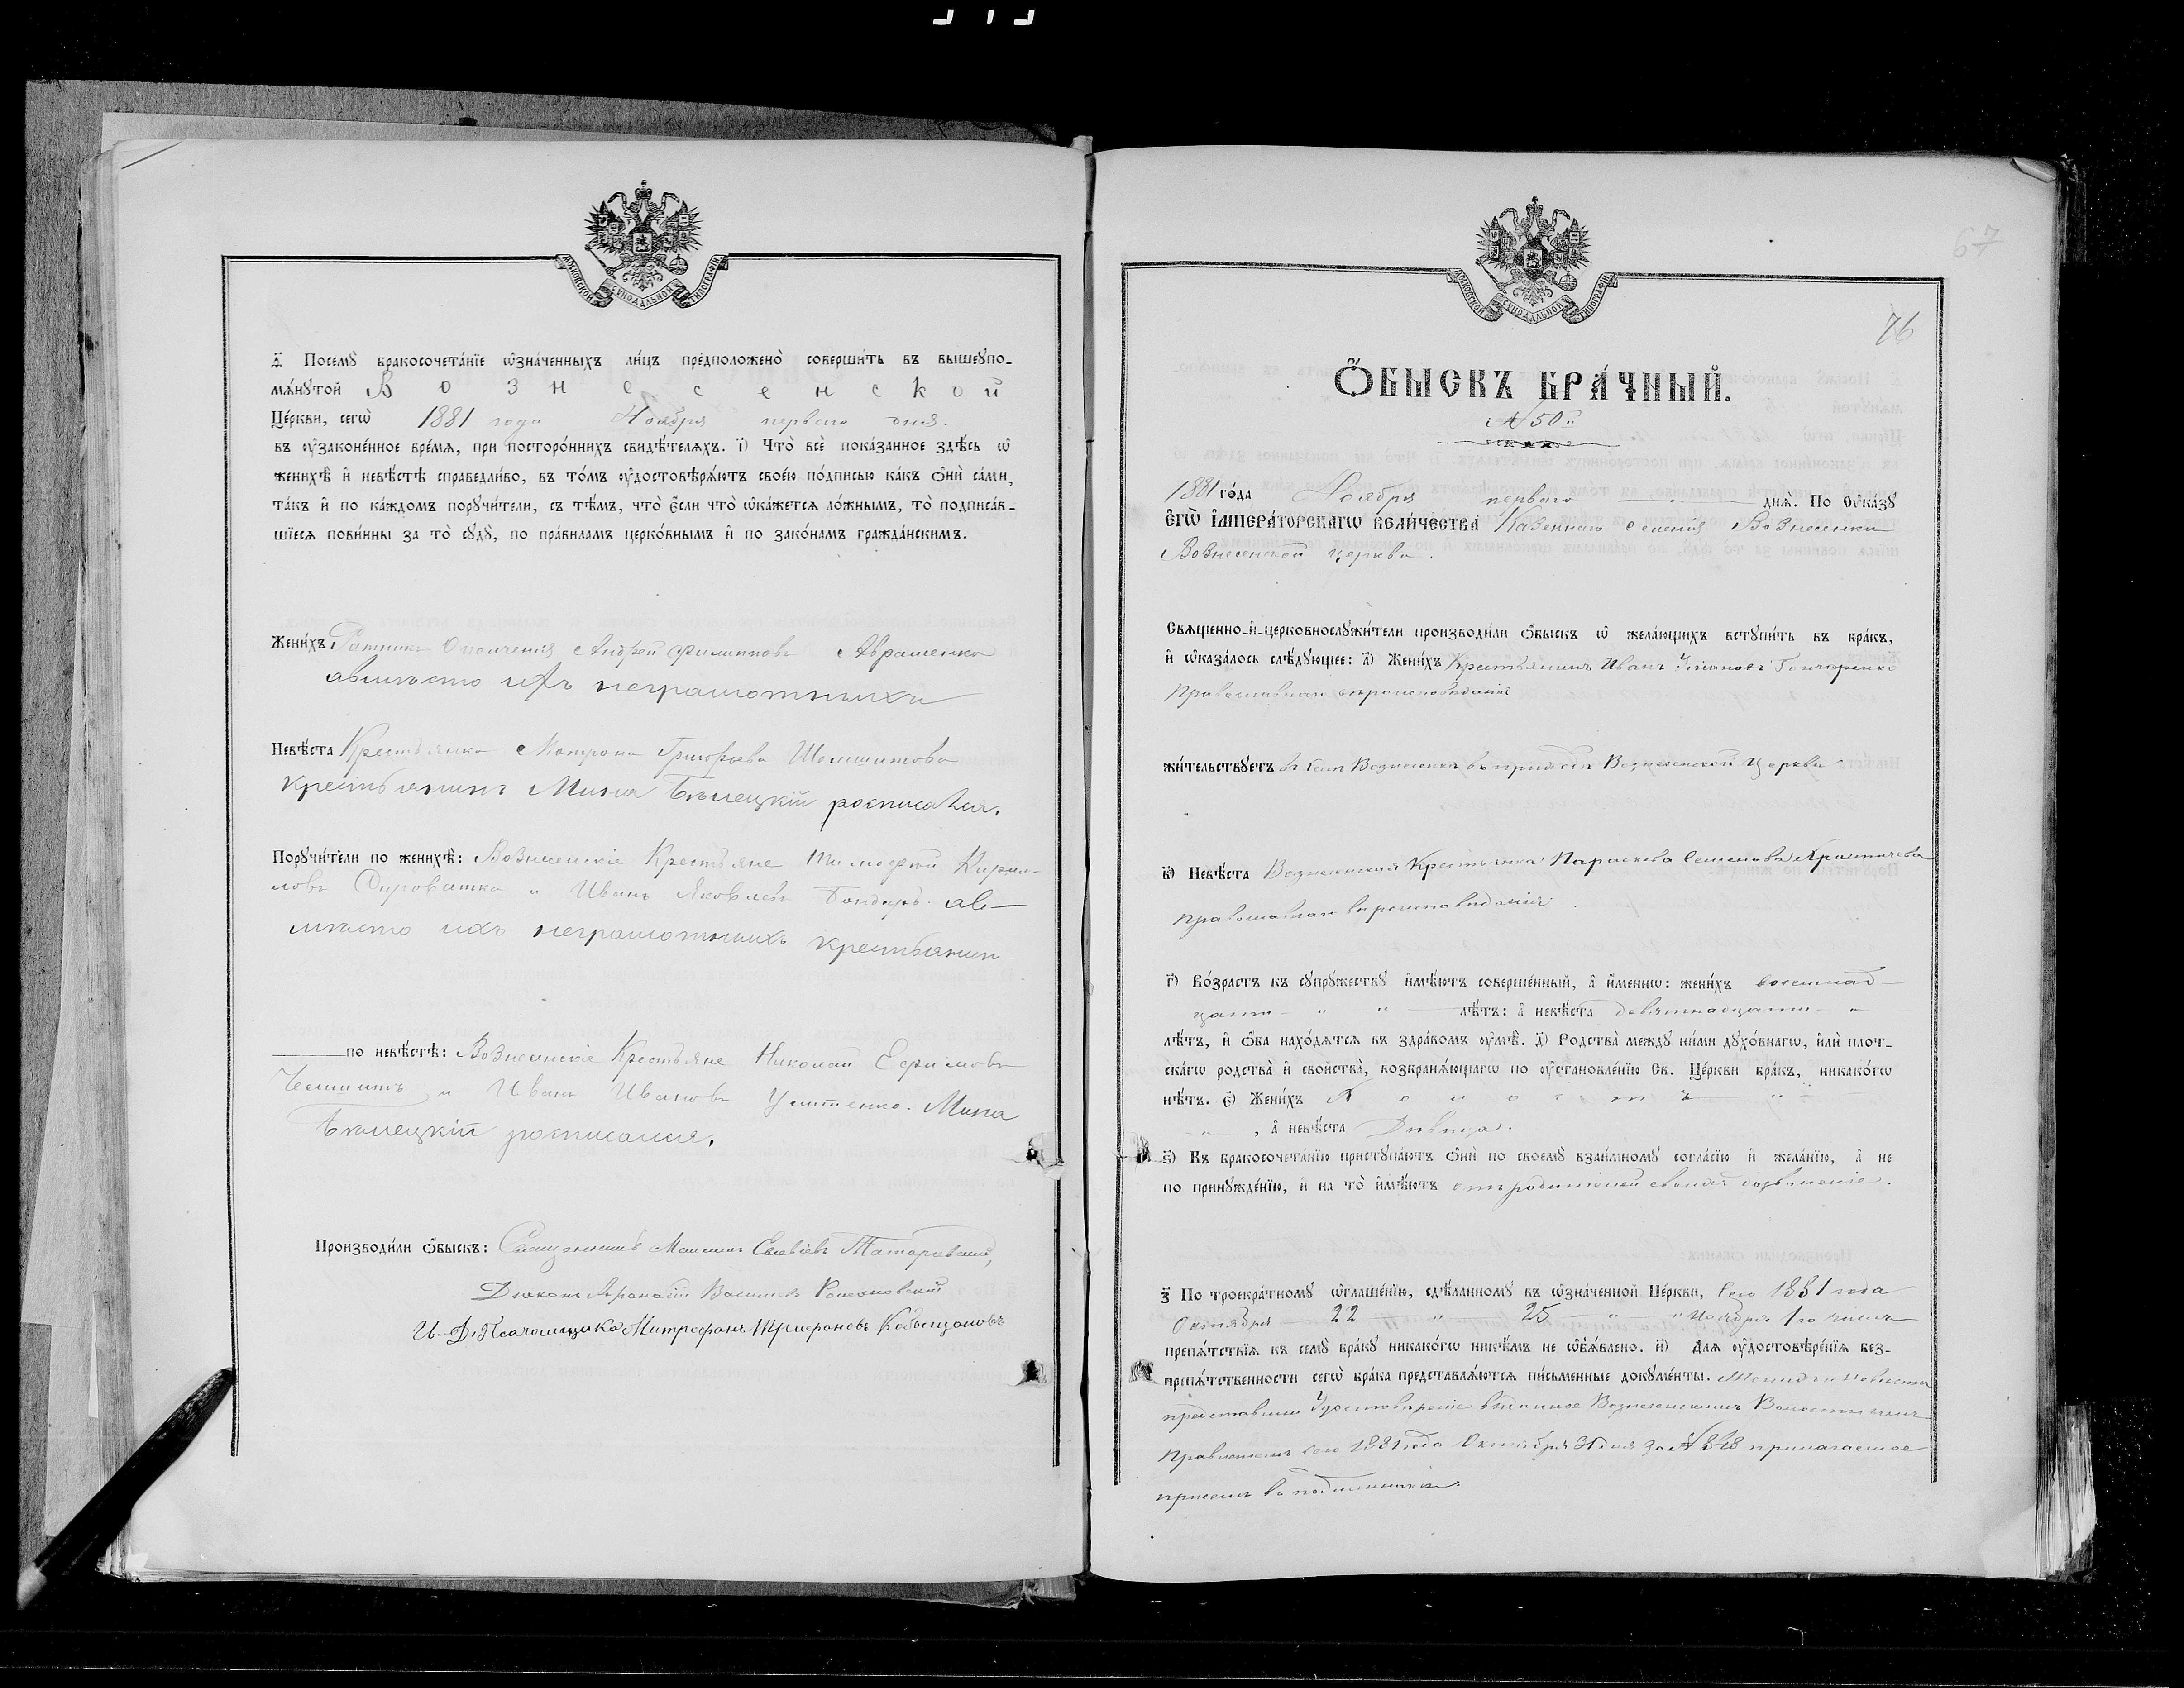 МОСКОВСКОЙ СѴНОДАЛЬНОЙ ТИПОГРАФІИ
Посемꙋ̀ бракосочета́нїе ѡ҆зна́ченныхъ ли́цъ предположено̀ соверши́ть въ вышеꙋпо-
мѧ́нꙋтой Вознесенской
Це́ркви, сегѡ̀ 1881 года Ноября перваго дня.
въ ᲂу҆зако́ненное вре́мѧ, при посторо́ннихъ свидѣ́телѧхъ. і҃) Что̀ всѐ пока́занное здѣ́сь ѡ҆
женихѣ̀ и҆ невѣ́стѣ справедли́во, въ то́мъ ᲂу҆достовѣрѧ́ютъ свое́ю по́дписью ка́къ ѻ҆нѝ са́ми,
та́къ и҆ по ка́ждомъ порꙋчи́тели, съ тѣ́мъ, что̀ є҆́сли что̀ ѡ҆ка́жетсѧ ло́жнымъ, то̀ подписа́в-
шїесѧ пови́нны за то̀ сꙋдꙋ̀, по пра́виламъ церко́внымъ и҆ по зако́намъ гражда́нскимъ.
Жени́хъ Ратникъ Ополченія Андрей Филиповъ Авраменко
авместо ихъ неграмотныхъ
Невѣ́ста Крестьянка Матрона Григорьева
крестьянинъ Мина Белецкій росписался.
Порꙋчи́тели по женихѣ̀: Вознесенскіе Крестьяне Тимофей Кирил-
ловъ Сыроватка и Иванъ Яковлевъ Бондарь. ав-
место ихъ неграмотныхъ крестьянин
по невѣ́стѣ: Вознесенскіе Крестьяне Николай Ефимовъ
и Иванъ Ивановъ Мина
Белецкій росписался.
Производи́ли ѻ҆́быскъ: Священникъ
Діаконъ Василіевъ Романовскій
И. Д. Псаломщика Митрофанъ
67
76
МОСКОВСКОЙ СѴНОДАЛЬНОЙ ТИПОГРАФІИ
Ѻ҆́БЫСКЪ БРА́ЧНЫЙ.
№ 50й
1881 го́да Ноября перваго днѧ̀. По Оу҆ка́зꙋ
Є҆гѡ̀ И҆мпера́торскагѡ Вели́чества Казеннаго селенія Вознесенки
Вознесенской церкви.
Свѧще́нно-и҆-церковнослꙋжи́тели производи́ли ѻ҆́быскъ ѡ҆ жела́ющихъ встꙋпи́ть въ бра́къ,
и҆ ѡ҆каза́лось слѣ́дꙋющее: а҃) Жени́хъ Крестьянинъ Иванъ Гончаренко
Православнаго вѣроисповѣданія
жи́тельствꙋетъ въ селѣ Вознесенкѣ въ приходѣ Вознесенской Церкви
в҃) Невѣ́ста Вознесенская Крестьянка Параскева Семенова
православнаго вѣроисповѣданія.
г҃) Во́зрастъ къ сꙋпрꙋ́жествꙋ и҆мѣ́ютъ соверше́нный, а҆ и҆́меннѡ: жени́хъ восемнад-
цати лѣ́тъ: а҆ невѣ́ста девятнадцати
лѣ́тъ, и҆ ѻ҆́ба нахо́дѧтсѧ въ здра́вомъ ᲂу҆мѣ̀. д҃) Родства̀ междꙋ̀ ни́ми дꙋхо́внагѡ, и҆лѝ плот-
ска́гѡ родства̀ и҆ свойства̀, возбранѧ́ющагѡ по ᲂу҆становле́нїю Св. Це́ркви бра́къ, никако́гѡ
нѣ́тъ. є҃) Жени́хъ Холостъ
, а҆ невѣ́ста Дѣвица.
ѕ҃) Къ бракосочета́нїю пристꙋпа́ютъ ѻ҆нѝ по своемꙋ̀ взаи́мномꙋ согла́сїю и҆ жела́нїю, а҆ не
по принꙋжде́нїю, и҆ на то̀ и҆мѣ́ютъ отъ родителей своихъ дозволеніе.
з҃ По троекра́тномꙋ ѡ҆глаше́нїю, сдѣ́ланномꙋ въ ѡ҆зна́ченной Це́ркви, сего 1881 года
Октября 22 25 и Ноября 1го числъ
препѧ́тствїѧ къ семꙋ̀ бра́кꙋ никако́гѡ никѣ́мъ не ѡ҆б̾ѧ́влено. и҃) Длѧ ᲂу҆достовѣре́нїѧ без-
препѧ́тственности сегѡ̀ бра́ка представлѧ́ютсѧ пи́сьменные докꙋме́нты. Женихъ и невѣста
представили Удостовѣреніе выданное Вознесенскимъ Волостнымъ
Правленіемъ сего 1881 года Октября 31 дня за № прилагаемое
при семъ въ подлинникѣ.